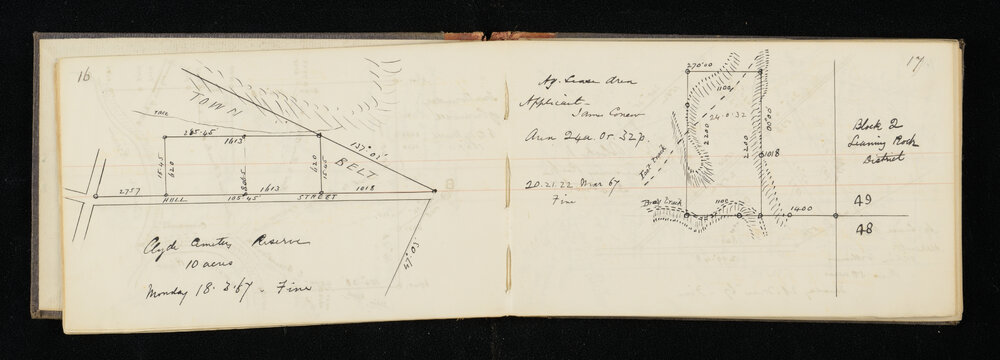 16
TOWN
BELT
Race
285·45
1613
137°03'
15·45
620
620
15·45
2757
1613
1018
HULL
105°45
STREET
47°03
Clyde Cemetery Reserve
10 acres
Monday 18·3·67 - Fine
17
Ag. Lease Area
Applicant
Area 24a 0r 32p.
20.21.22 Mar 67
Fine
270°00
1100
24·0·32
2200
2200
00°00
1018
Foot Track
Dray Track
1100
1400
Block 2
Leaning Rock
District
49
48